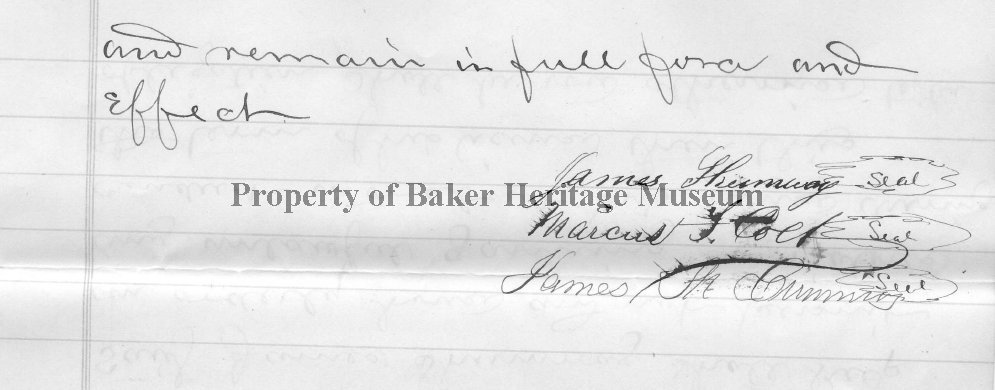 and remain in full force and
Effect
James Shumway Seal
Property of Baker Heritage Museum
Marcus Seal
James Seal